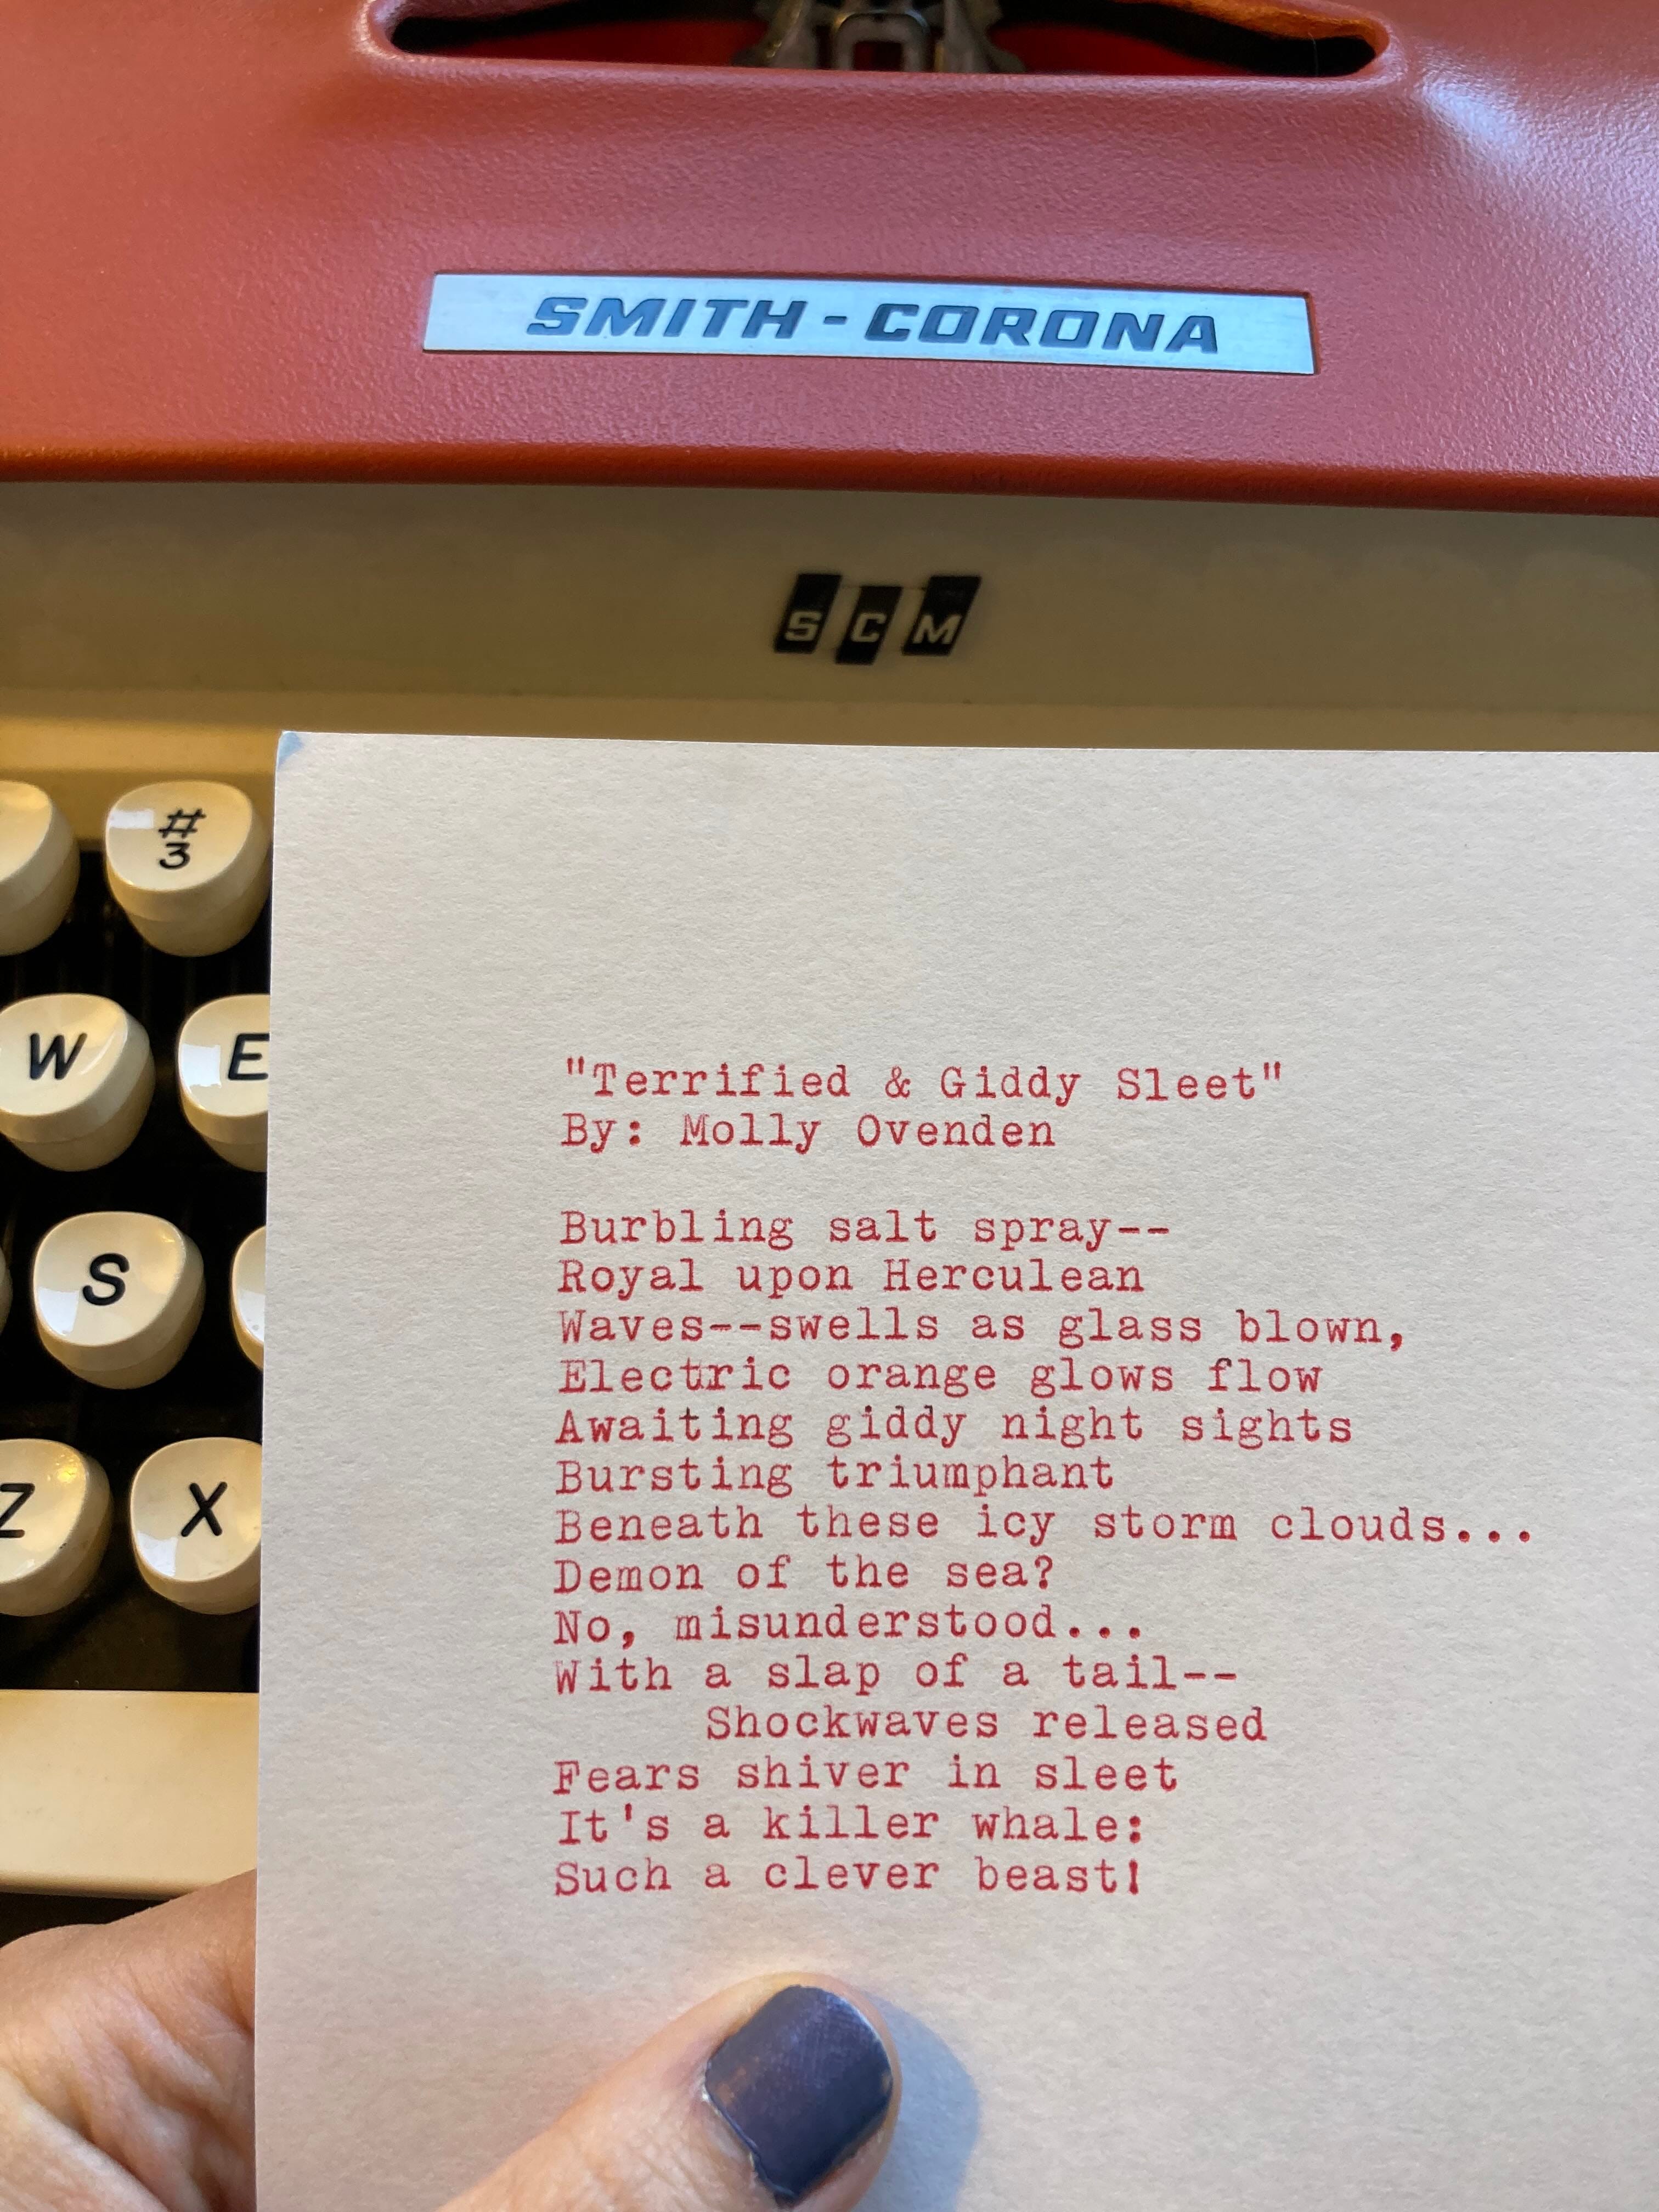 SMITH-CORONA
SCM
#
3
W
E
S
Z
X
"Terrified & Giddy Sleet"
By: Molly Ovenden
Burbling salt spray--
Royal upon Herculean
Waves--swells as glass blown,
Electric orange glows flow
Awaiting giddy night sights
Bursting triumphant
Beneath these icy storm clouds...
Demon of the sea?
No, misunderstood...
With a slap of a tail--
Shockwaves released
Fears shiver in sleet
It's a killer whale:
Such a clever beast!